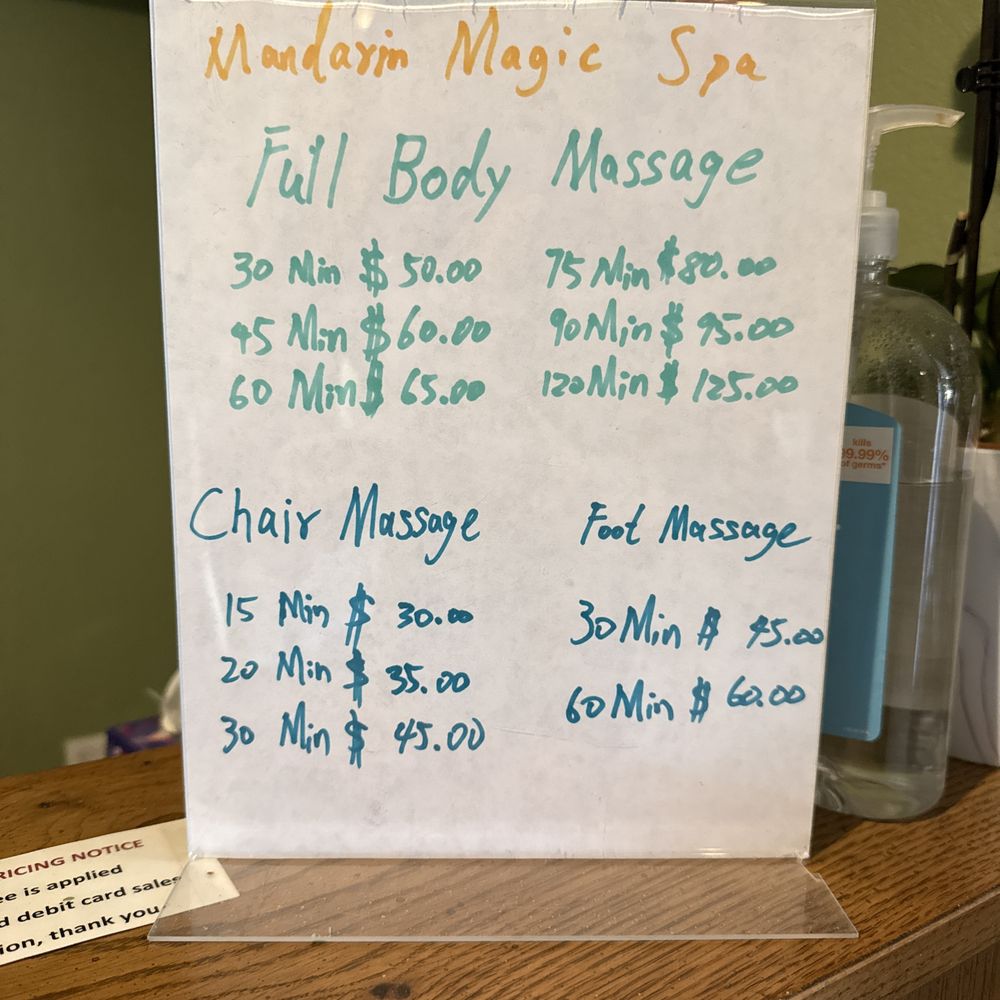 Mandarin Magic Spa
Full Body Massage
30 Min $ 50.00
45 Min $ 60.00
60 Min $ 65.00
75 Min $ 80.00
90 Min $ 95.00
120 Min $ 125.00
Chair Massage
15 Min $ 30.00
20 Min $ 35.00
30 Min $ 45.00
Foot Massage
30 Min $ 45.00
60 Min $ 60.00
kills
99.99%
of germs*
RICING NOTICE
ee is applied
d debit card sales
ion, thank you